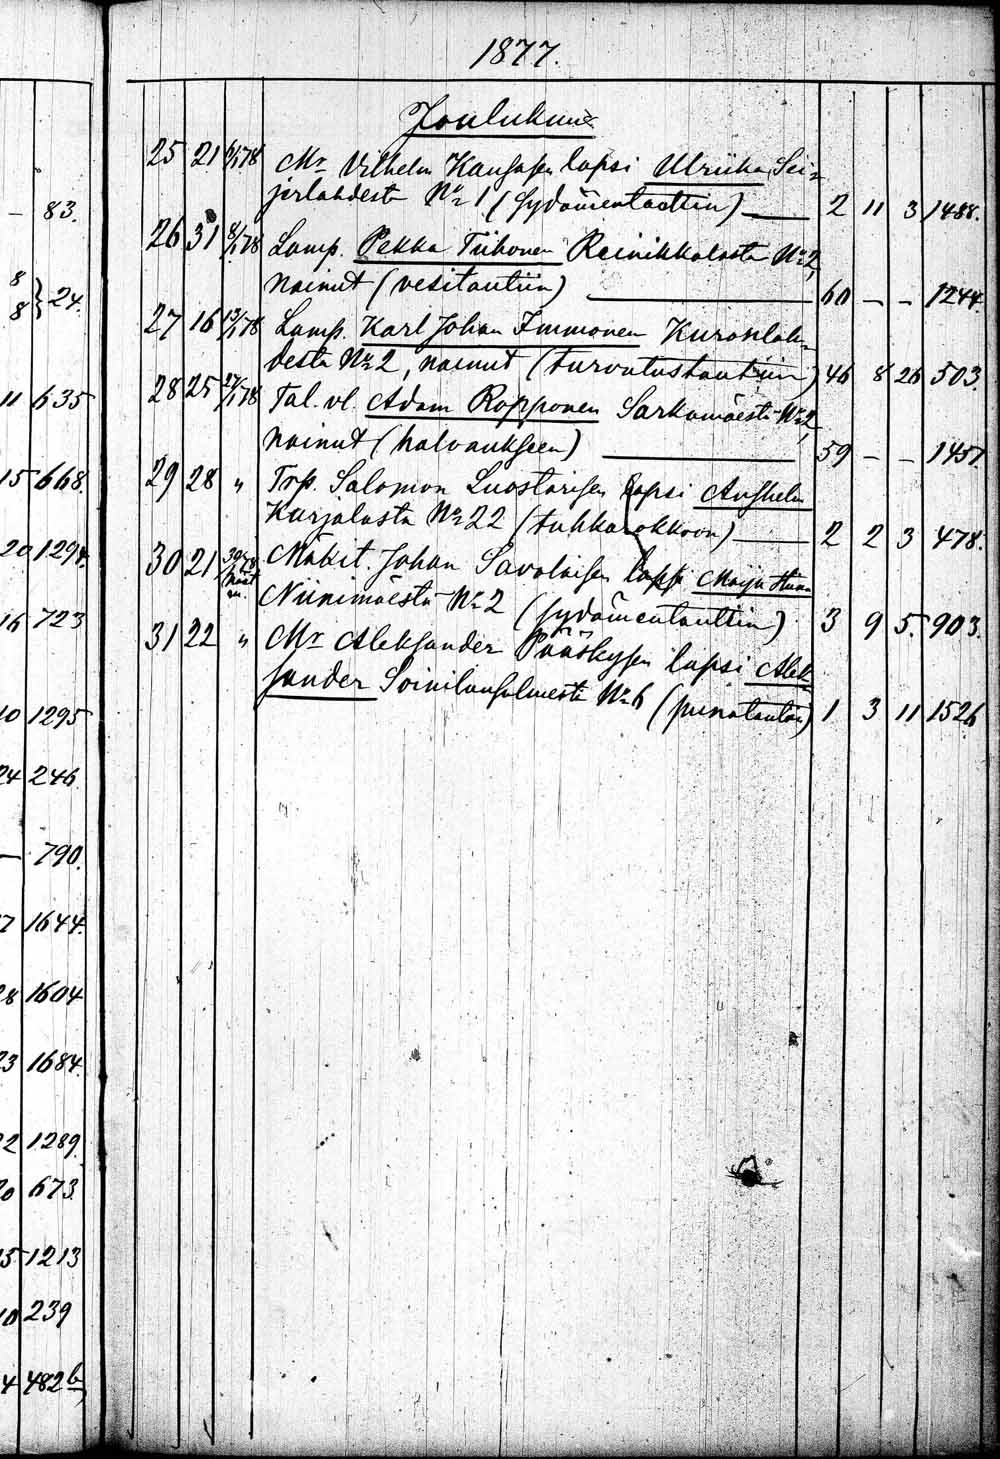 1877.
Joulukuu
25 21 6/1 78 Mr Vilhelm Kaugasen lapsi Ulriika Sei-
jerlahdesta No 1 (sydämentautiin) 2 11 3 1488.
26 31 8/1 78 Lamp. Pekka Tiihonen Reinikkalasta No 2,
nainut (vesitautiin) 60 — — 1244.
27 16 13/1 78 Lamp. Karl Johan Immonen Kuroslah-
desta No 2, nainut (turvotustautiin) 46 8 26 503.
28 25 27/1 78 Tal. vl. Adam Ropponen Sarkamäestä No 2,
nainut (halvaukseen) 59 — — 1457.
29 28 " Trp. Salomon Luostarisen lapsi Anshelm
Kurjalasta No 22 (tuhkarokkoon) 2 2 3 478.
30 21 Mäkit. Johan Savolaisen lapsi Maija
Niinimäestä No 2 (sydämentautiin) 3 9 5. 903.
31 22 " Mr Aleksander Pääskysen lapsi Alek-
sander Soinilansalmesta No 6 (punatautiin) 1 3 11 1526
— 83.
8
8 } 24.
11 635
15 668.
20 1294.
16 723
10 1295
24 246
— 790.
7 1644.
28 1604
23 1684.
22 1289.
20 673.
15 1213
10 239
4 482 b